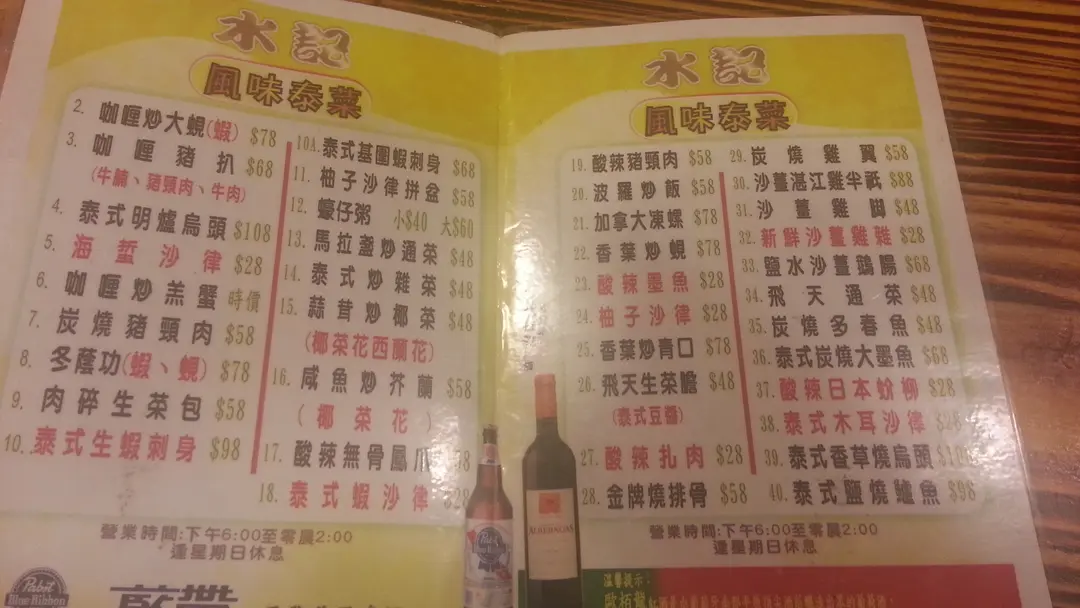 水記
風味泰菜
2. 咖喱炒大蜆(蝦) $78
3. 咖喱豬扒 $68
(牛腩、豬頸肉、牛肉)
4. 泰式明爐烏頭 $108
5. 海蜇沙律 $28
6. 咖喱炒羔蟹 時價
7. 炭燒豬頸肉 $58
8. 冬蔭功(蝦、蜆) $78
9. 肉碎生菜包 $58
10. 泰式生蝦刺身 $98
10A. 泰式基圍蝦刺身 $68
11. 柚子沙律拼盆 $58
12. 蠔仔粥 小$40 大$60
13. 馬拉盞炒通菜 $48
14. 泰式炒雜菜 $48
15. 蒜茸炒椰菜 $48
(椰菜花西蘭花)
16. 咸魚炒芥蘭 $58
(椰菜花)
17. 酸辣無骨鳳爪
18. 泰式蝦沙律 $28
營業時間:下午6:00至零晨2:00
逢星期日休息
Pabst
Blue Ribbon
藍帶
水記
風味泰菜
19. 酸辣豬頸肉 $58
20. 波羅炒飯 $58
21. 加拿大凍螺 $78
22. 香葉炒蜆 $78
23. 酸辣墨魚 $28
24. 柚子沙律 $28
25. 香葉炒青口 $78
26. 飛天生菜膽 $48
(泰式豆醬)
27. 酸辣扎肉 $28
28. 金牌燒排骨 $58
29. 炭燒雞翼 $58
30. 沙薑湛江雞半祇 $88
31. 沙薑雞腳 $48
32. 新鮮沙薑雞雜 $28
33. 鹽水沙薑鵝腸 $68
34. 飛天通菜 $48
35. 炭燒多春魚 $48
36. 泰式炭燒大墨魚 $68
37. 酸辣日本蚧柳 $28
38. 泰式木耳沙律
39. 泰式香草燒烏頭
40. 泰式鹽燒鱸魚 $98
營業時間:下午6:00至零晨2:00
逢星期日休息
溫馨提示: